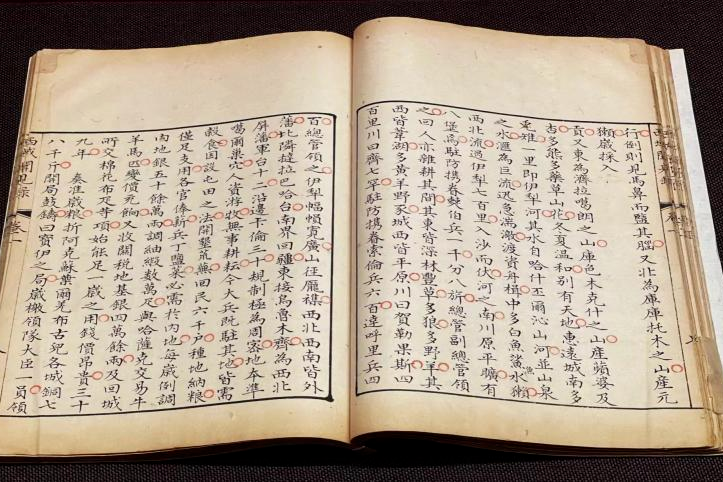 行倒則見馬鼻而鹽其腦又北為庫庫托木之山產元
獺歲採入
貢又東為濟拉噶朗之山庫色木克什之山產蘋婆及
吉多熊多藥草山花冬夏溫和別有天地惠遠城南多
雉一里即伊犁河其水自哈什丕爾沁山河並山泉
之水滙為巨流迅急湍激渡資舟楫中多白魚鯊水獺
西北流過伊犁七百里入沙而伏河之南川原平曠有
八堡為駐防攜眷兵一千分八旂總管副總管領
之回人亦雜耕其間其東皆深林豐草多狼多野羊其
西皆葦湖多黃羊野豕城西皆平原川曰賀勒果斯四
百里川曰齊七罕駐防攜眷索倫兵六百達呼里兵四
百總管領之伊犁幅幀寬廣山徑龐襍西北西南皆外
藩北隣㺚巴哈台南界回疆東接烏魯木齊為西北
屏藩軍台十二沿邊卡倫三十規制極為周宻地本準
噶爾巢穴人資游牧無事耕耘今大兵既駐其地皆需
穀食因設屯田之法開墾荒蕪回民六千戶種地納粮
僅足支用各官俸薪兵丁鹽菜必需於內地每歲例調
內地銀五十餘萬兩調紬緞數萬疋與哈薩克交易牛
羊馬匹變價充餉又收關稅地基銀四萬餘兩及回城
所交棉花布疋等項始能足一歲之用錢價昂貴三十
九年奏准歲粮折阿克蘇葉爾羌布古兒各城銅七
八千開局鼓鑄曰寶伊之局歲檄領隊大臣一員領
西域聞見錄 卷一